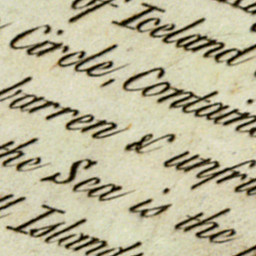 of Iceland
Circle, Contain
barren & unfru
the Sea is the
Island